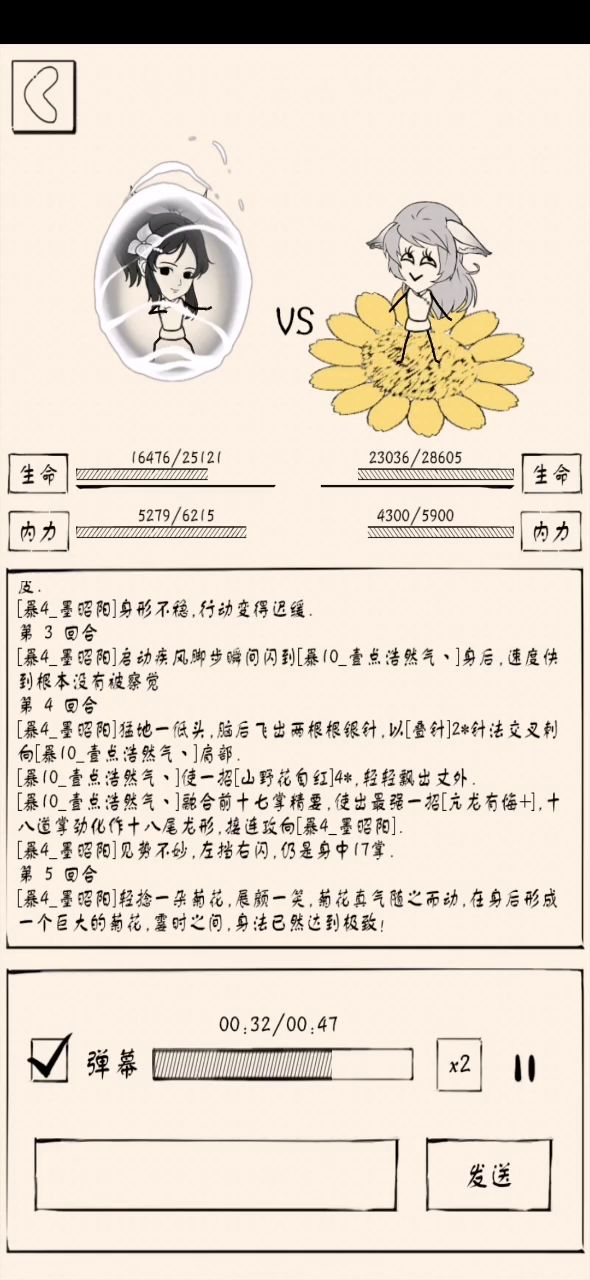 VS
16476/25121
23036/28605
生命
生命
5279/6215
4300/5900
内力
内力
[暴4_墨昭阳]身形不稳,行动变得迟缓.
第 3 回合
[暴4_墨昭阳]启动疾风脚步瞬间闪到[暴10_壹点浩然气丶]身后,速度快
到根本没有被察觉
第 4 回合
[暴4_墨昭阳]猛地一低头,脑后飞出两根根银针,以[叠针]2*针法交叉刺
向[暴10_壹点浩然气丶]肩部.
[暴10_壹点浩然气丶]使一招[山野花自红]4*,轻轻飘出丈外.
[暴10_壹点浩然气丶]融合前十七掌精要,使出最强一招[亢龙有悔+],十
八道掌劲化作十八尾龙形,接连攻向[暴4_墨昭阳].
[暴4_墨昭阳]见势不妙,左挡右闪,仍是身中17掌.
第 5 回合
[暴4_墨昭阳]轻捻一朵菊花,展颜一笑,菊花真气随之而动,在身后形成
一个巨大的菊花,霎时之间,身法已然达到极致!
00:32/00:47
弹幕
x2
发送